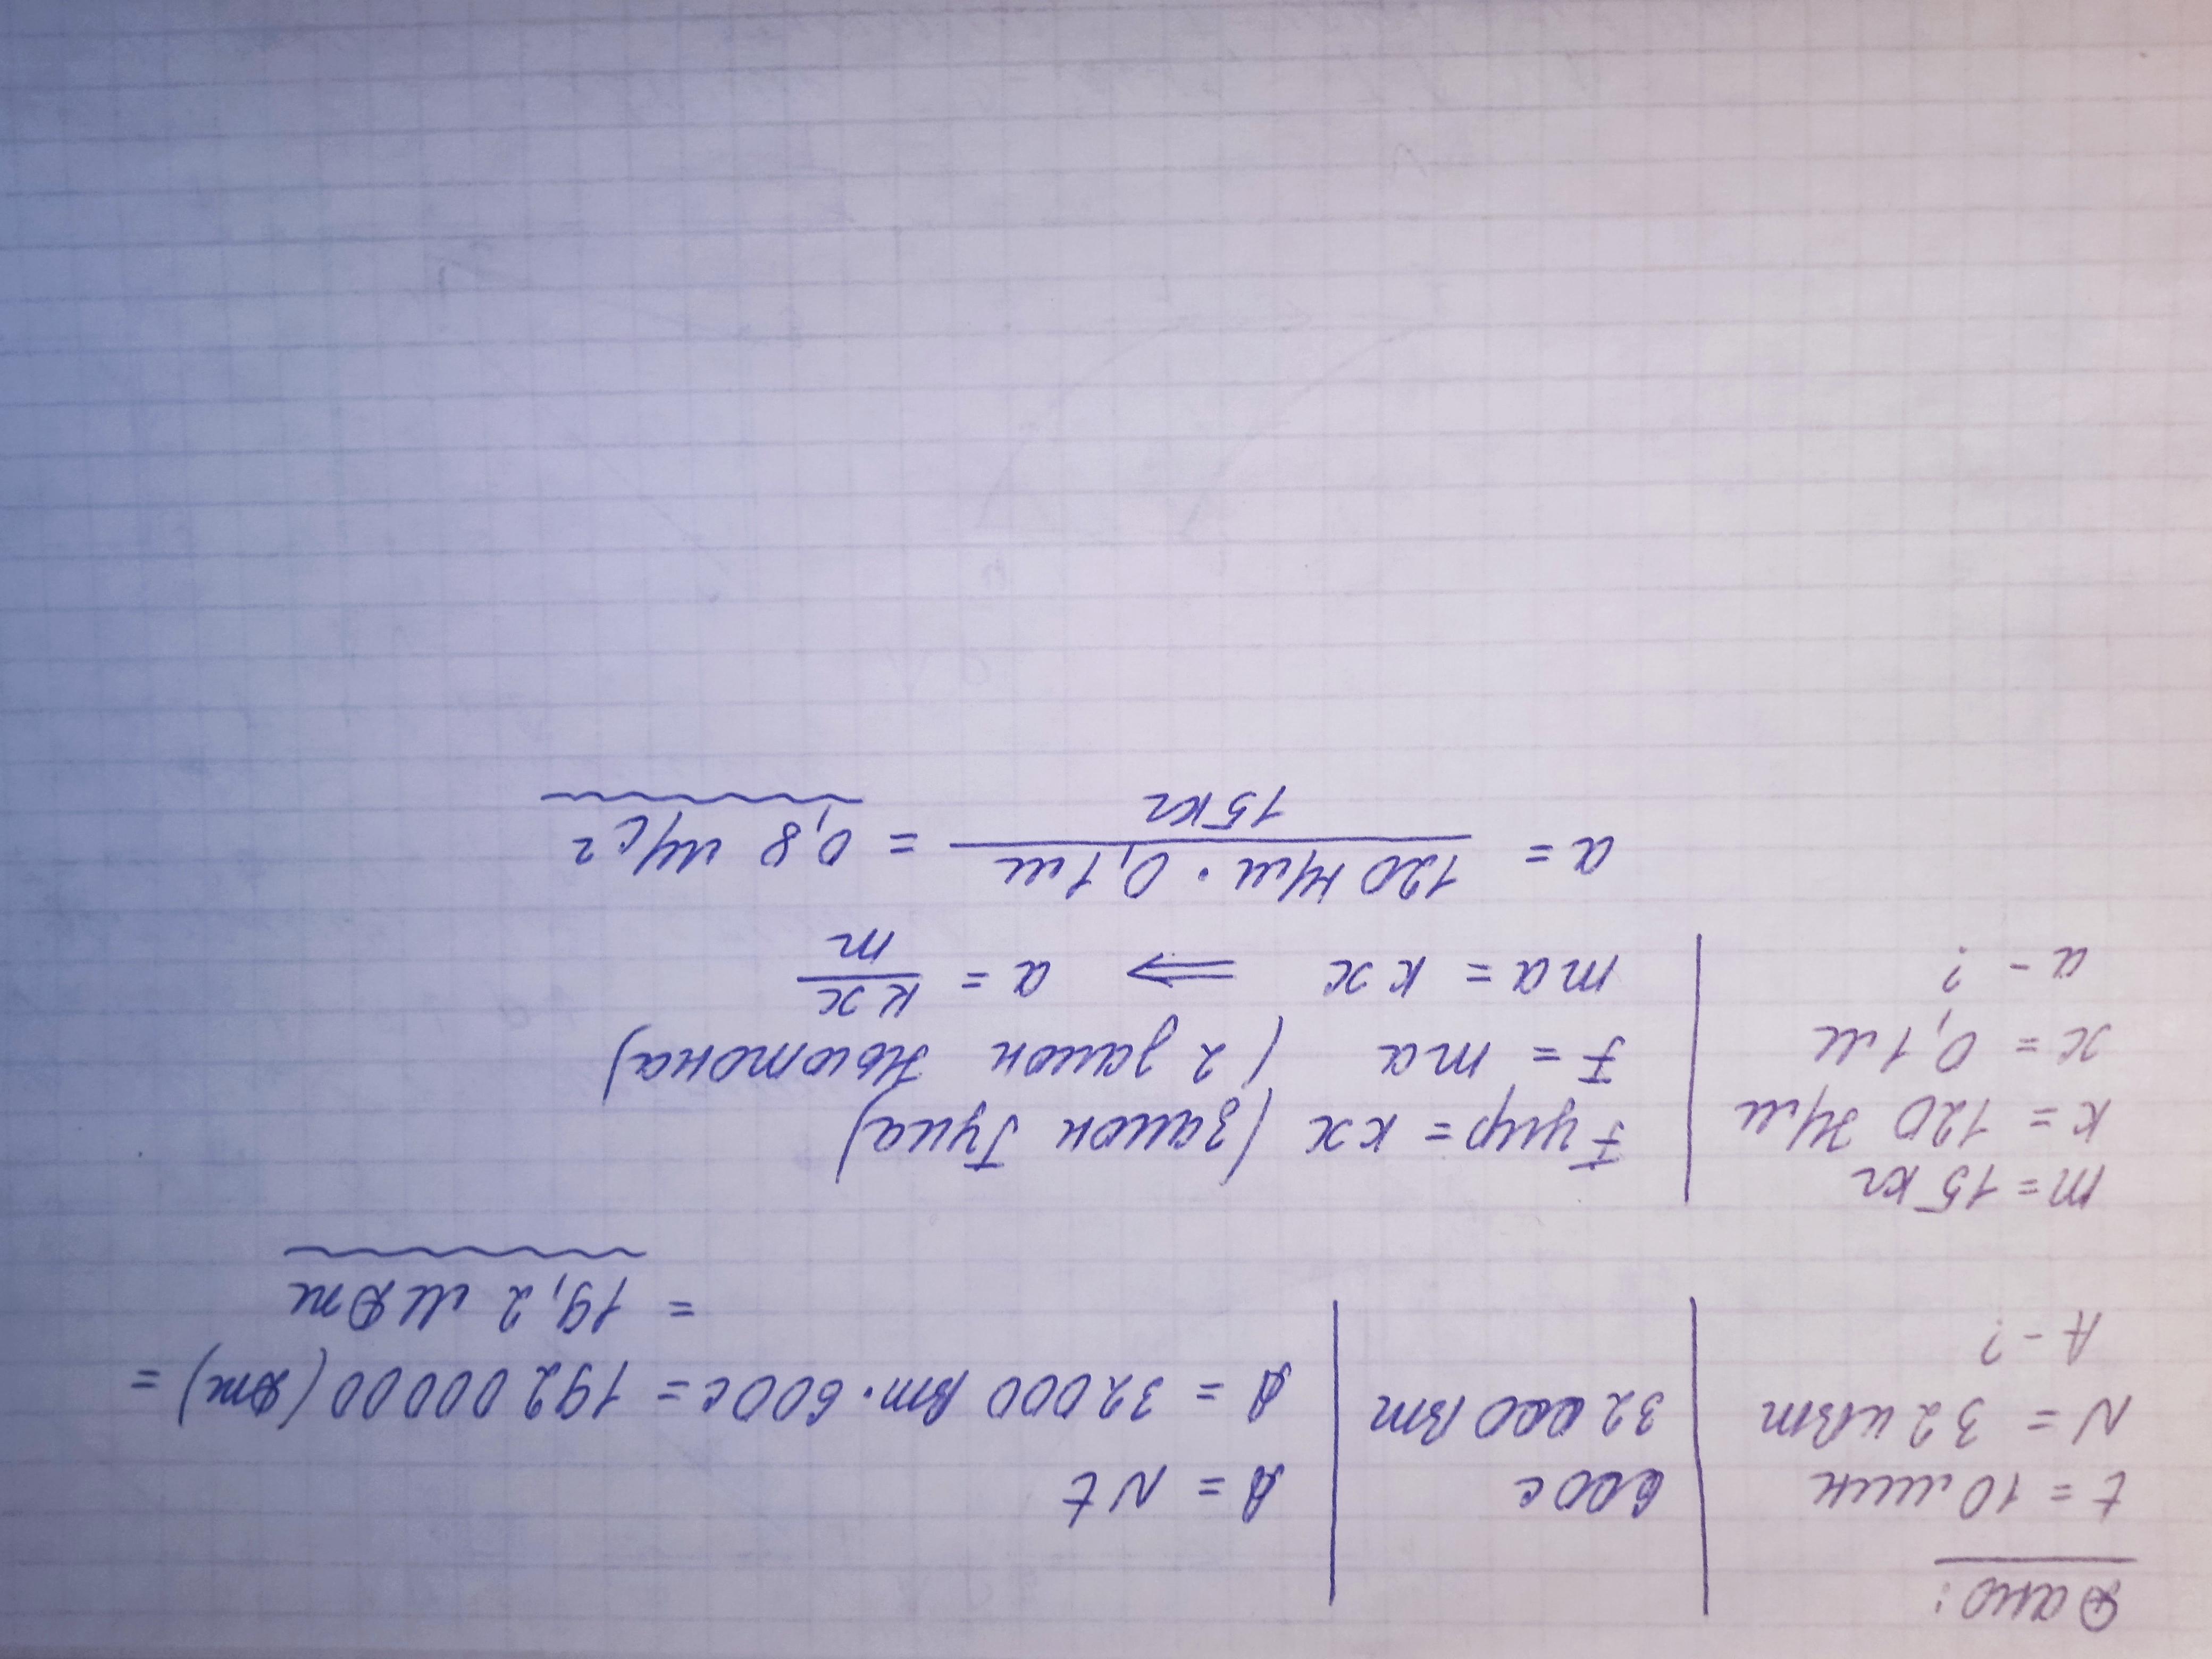 Дано:
t = 10 мин | 600 с | A = Nt
N = 32 кВт | 32 000 Вт | A = 32 000 Вт · 600 с = 192 00000 (Дж) =
A - ? = 19,2 МДж
m = 15 кг
k = 120 Н/м | Fупр = kx (закон Гука)
x = 0,1 м | F = ma (2 закон Ньютона)
a - ? | ma = kx ⟹ a = kx/m
a = 120 Н/м · 0,1 м / 15 кг = 0,8 м/с²